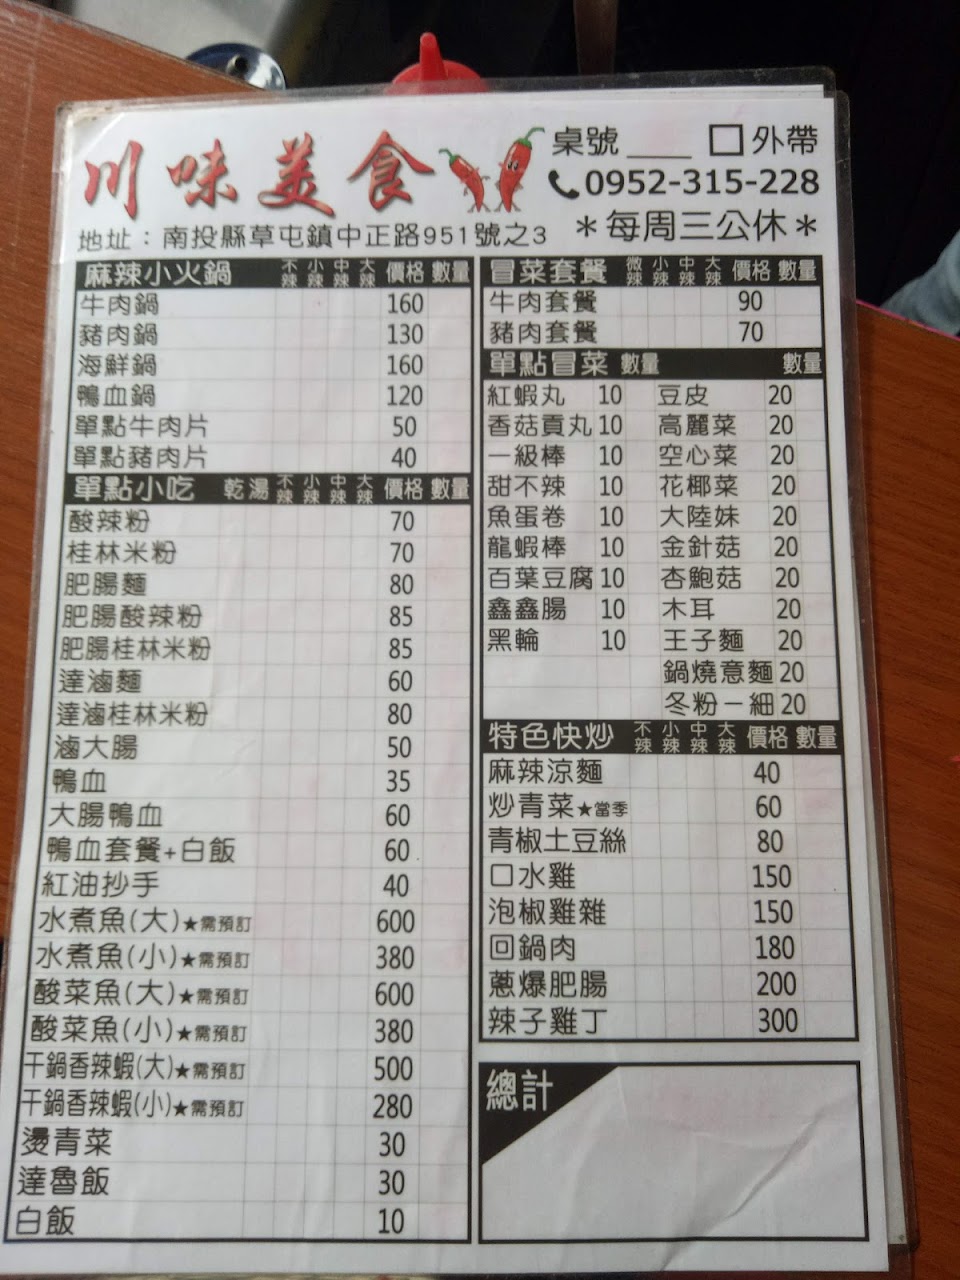 川味美食
桌號____ □外帶
0952-315-228
地址：南投縣草屯鎮中正路951號之3
＊每周三公休＊
麻辣小火鍋 不辣 小辣 中辣 大辣 價格 數量
牛肉鍋 160
豬肉鍋 130
海鮮鍋 160
鴨血鍋 120
單點牛肉片 50
單點豬肉片 40
單點小吃 乾 湯 不辣 小辣 中辣 大辣 價格 數量
酸辣粉 70
桂林米粉 70
肥腸麵 80
肥腸酸辣粉 85
肥腸桂林米粉 85
達滷麵 60
達滷桂林米粉 80
滷大腸 50
鴨血 35
大腸鴨血 60
鴨血套餐+白飯 60
紅油抄手 40
水煮魚(大)★需預訂 600
水煮魚(小)★需預訂 380
酸菜魚(大)★需預訂 600
酸菜魚(小)★需預訂 380
干鍋香辣蝦(大)★需預訂 500
干鍋香辣蝦(小)★需預訂 280
燙青菜 30
達魯飯 30
白飯 10
冒菜套餐 微辣 小辣 中辣 大辣 價格 數量
牛肉套餐 90
豬肉套餐 70
單點冒菜 數量 數量
紅蝦丸 10 豆皮 20
香菇貢丸 10 高麗菜 20
一級棒 10 空心菜 20
甜不辣 10 花椰菜 20
魚蛋卷 10 大陸妹 20
龍蝦棒 10 金針菇 20
百葉豆腐 10 杏鮑菇 20
鑫鑫腸 10 木耳 20
黑輪 10 王子麵 20
鍋燒意麵 20
冬粉－細 20
特色快炒 不辣 小辣 中辣 大辣 價格 數量
麻辣涼麵 40
炒青菜★當季 60
青椒土豆絲 80
口水雞 150
泡椒雞雜 150
回鍋肉 180
蔥爆肥腸 200
辣子雞丁 300
總計